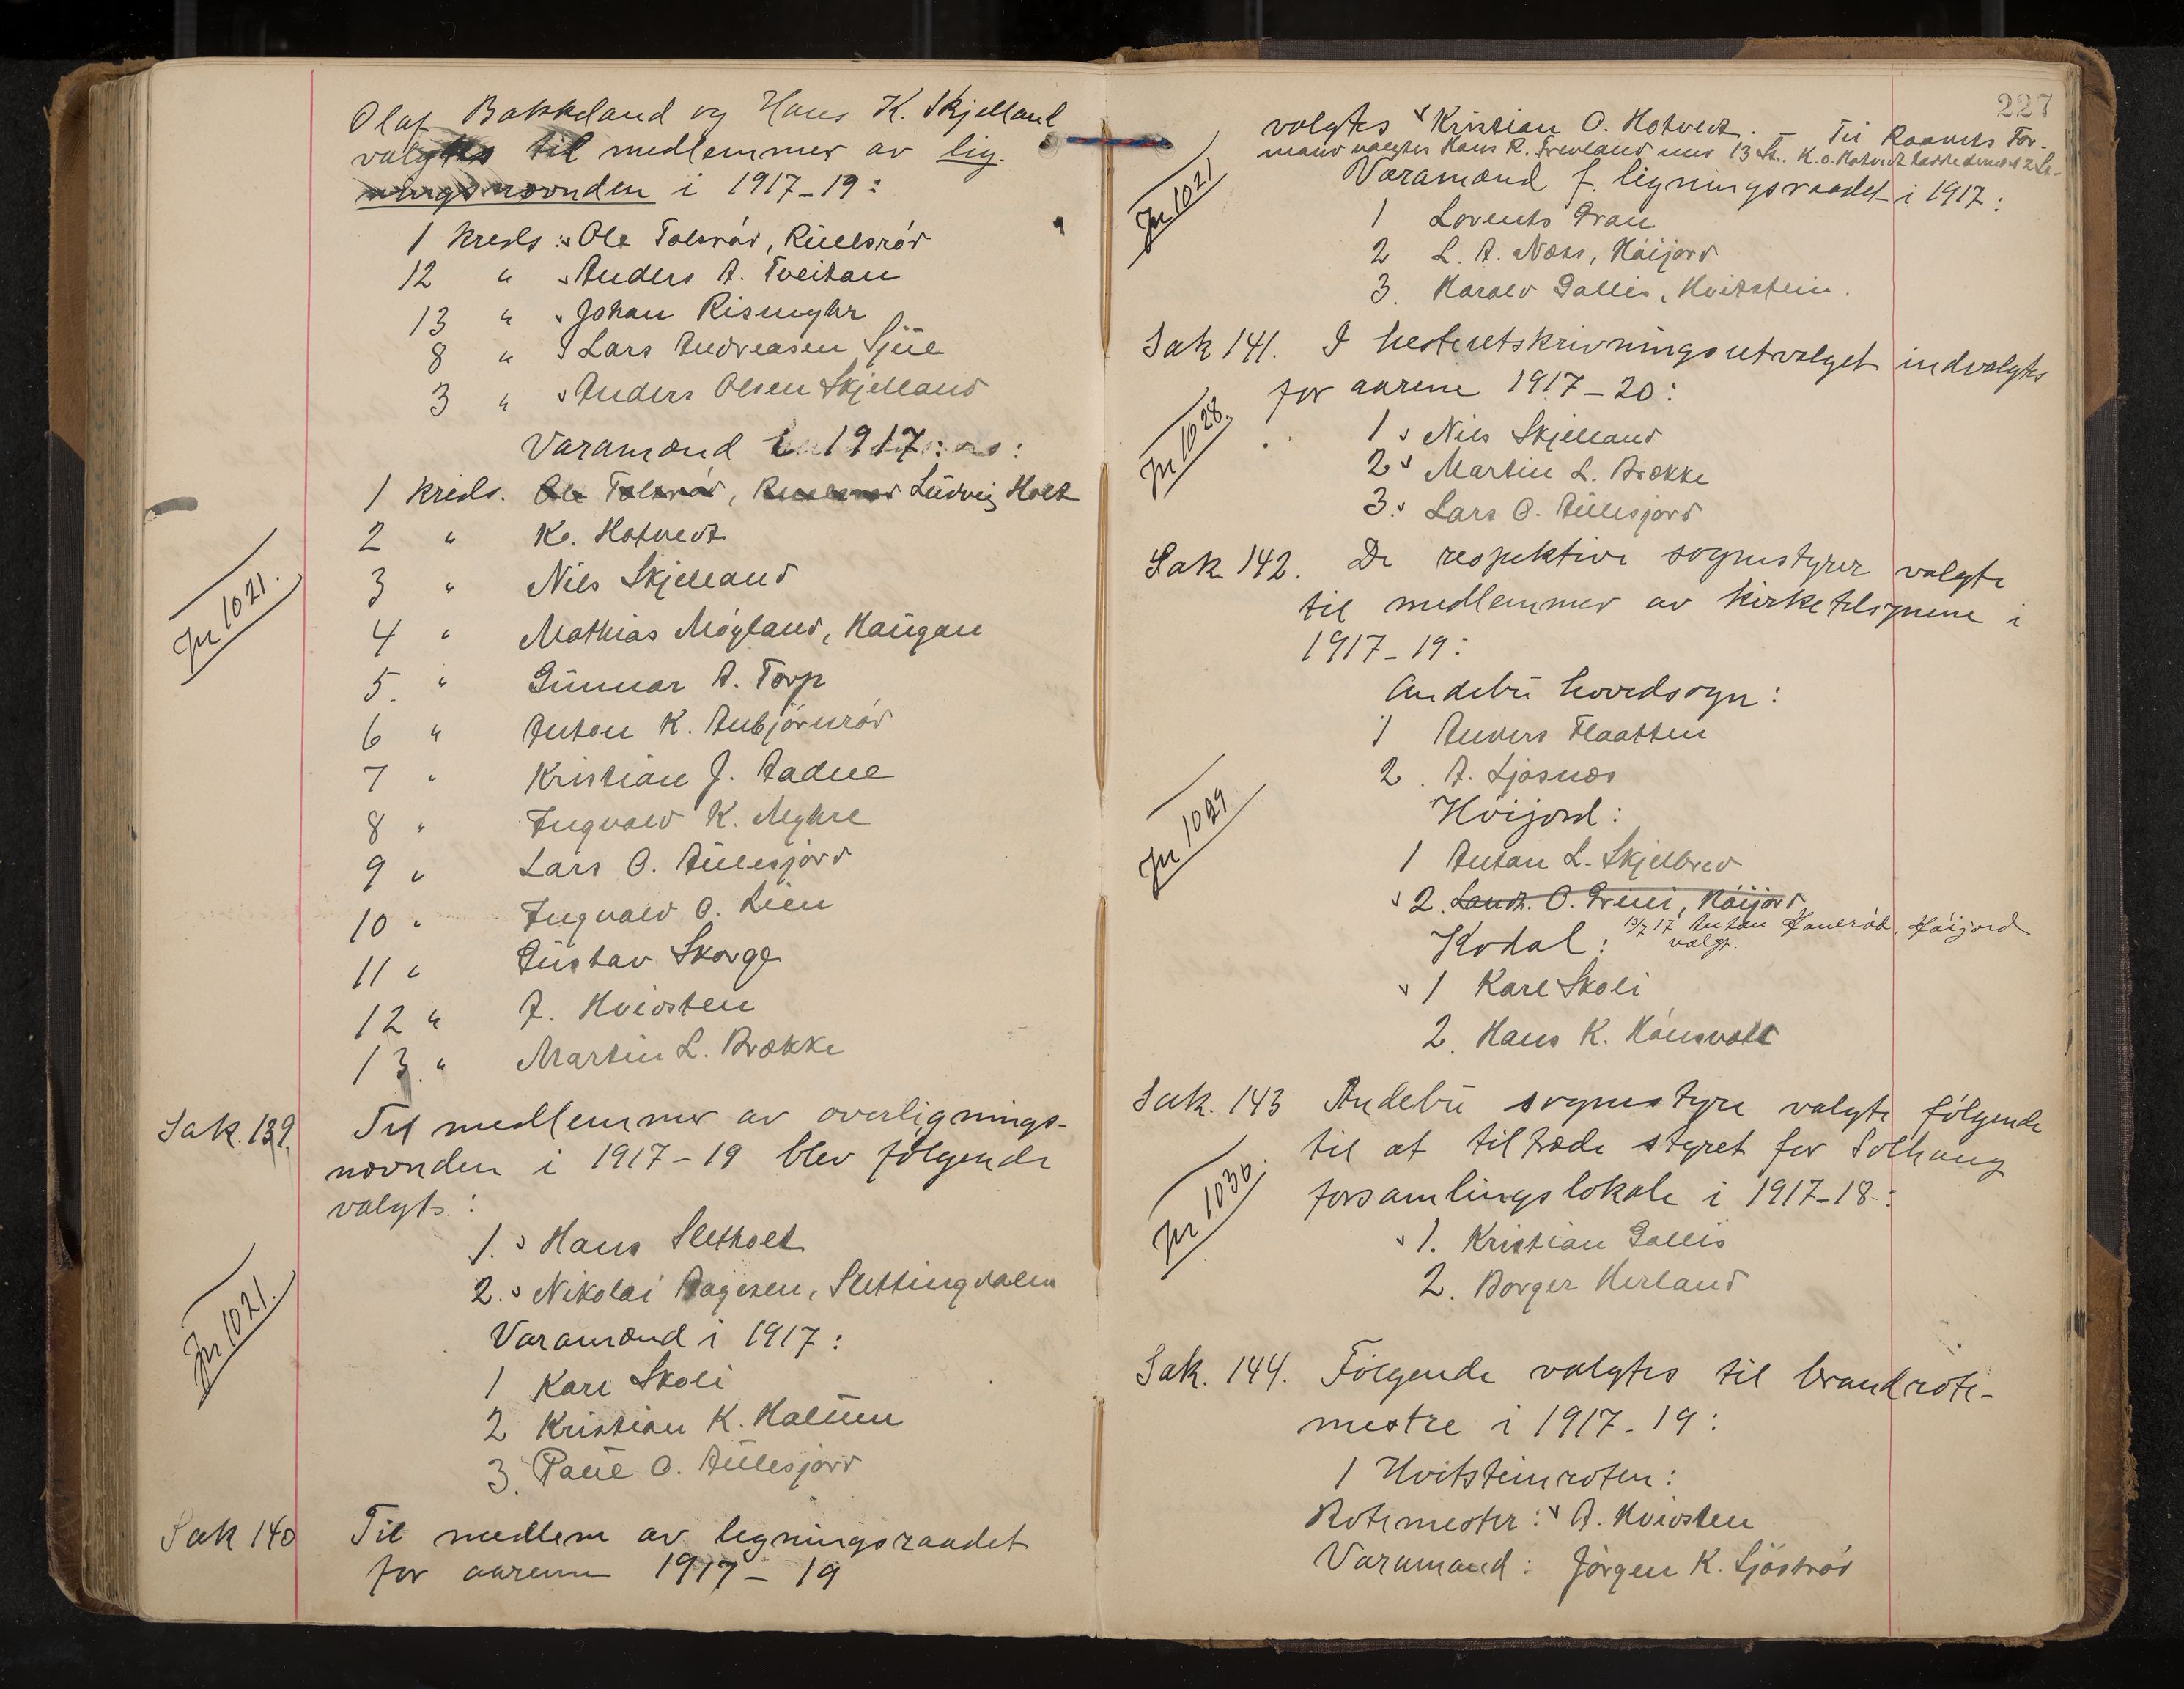 Olaf Bakkeland og Hans K. Skjelland
valgtes til medlemmer av lig-
ningsnævnden i 1917-19:
1 kreds: Ole Tolsrød, Ruelsrød
12 " Anders A. Tveitan
13 " Johan Rismyhr
8 " Lars Andreasen Sjue
3 " Anders Olsen Skjelland
Varamænd i 1917:
1 kreds. Ole Tolsrød, Ludvig Holt
2 " K. Hotvedt
3 " Nils Skjelland
4 " Mathias Møyland, Haugan
5. " Gunnar A. Torp
6 " Anton K. Anbjørnrød
7 " Kristian J. Aadne
8 " Ingvald K. Myhre
9 " Lars O. Aulesjord
10 " Ingvald O. Lien
11 " Gustav Skorge
12 " A. Hvidsten
13. " Martin L. Brække
Jnr 1021.
Sak. 139. Til medlemmer av overlignings-
nævnden i 1917-19 blev følgende
valgts:
1. Hans Sletholt
2. Nikolai Aagesen, Slettingdalen
Varamænd i 1917:
1 Karl Skoli
2 Kristian K. Halum
3. Paul O. Aulesjord
Jnr 1021.
Sak 140 Til medlem av ligningsraadet
for aarene 1917-19
227
valgtes Kristian O. Hotvedt. - Til Raadets For-
mand valgtes Hans R. Trevland med 13 st. K. O. Hotvedt hadde dernest 2 st.
Varamænd f. ligningsraadet i 1917:
1 Lorents Gran
2 L. A. Næss, Høijord
3. Harald Gallis, Hvitstein.
Jnr 1021
Sak 141. I hesteutskrivningsutvalget indvalgtes
for aarene 1917-20:
1 Nils Skjelland
2 Martin L. Brække
3. Lars O. Aulesjord
Jnr 1028.
Sak 142. De respektive sognestyrer valgte
til medlemmer av kirketilsynene i
1917-19:
Andebu hovedsogn:
1 Anders Flaatten
2. A. Ljøsnæs
Høijord:
1 Anton L. Skjelbred
2. O. Grini, Høijord
13/7 17 Anton Hanerød, Høijord
valgt.
Kodal:
1 Karl Skoli
2. Hans K. Hønsvall
Jnr 1029
Sak. 143 Andebu sognestyre valgte følgende
til at tiltræde styret for Solhaug
forsamlingslokale i 1917-18:
1. Kristian Gallis
2. Borger Herland
Jnr 1030.
Sak. 144. Følgende valgtes til brandrote-
mestre i 1917-19:
1 Hvitsteinroten:
Rotemester: A. Hvidsten
Varamand: Jørgen K. Sjøstrød